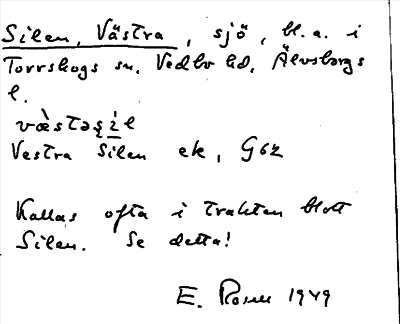 Silen, Västra, sjö, bl.a. i
Torrskogs sn. Vedbo hd. Älvsborgs
l.
væ̀stəʂíl
Vestra Silen ek, G62
Kallas ofta i trakten blott
Silen. Se detta!
E. 1949